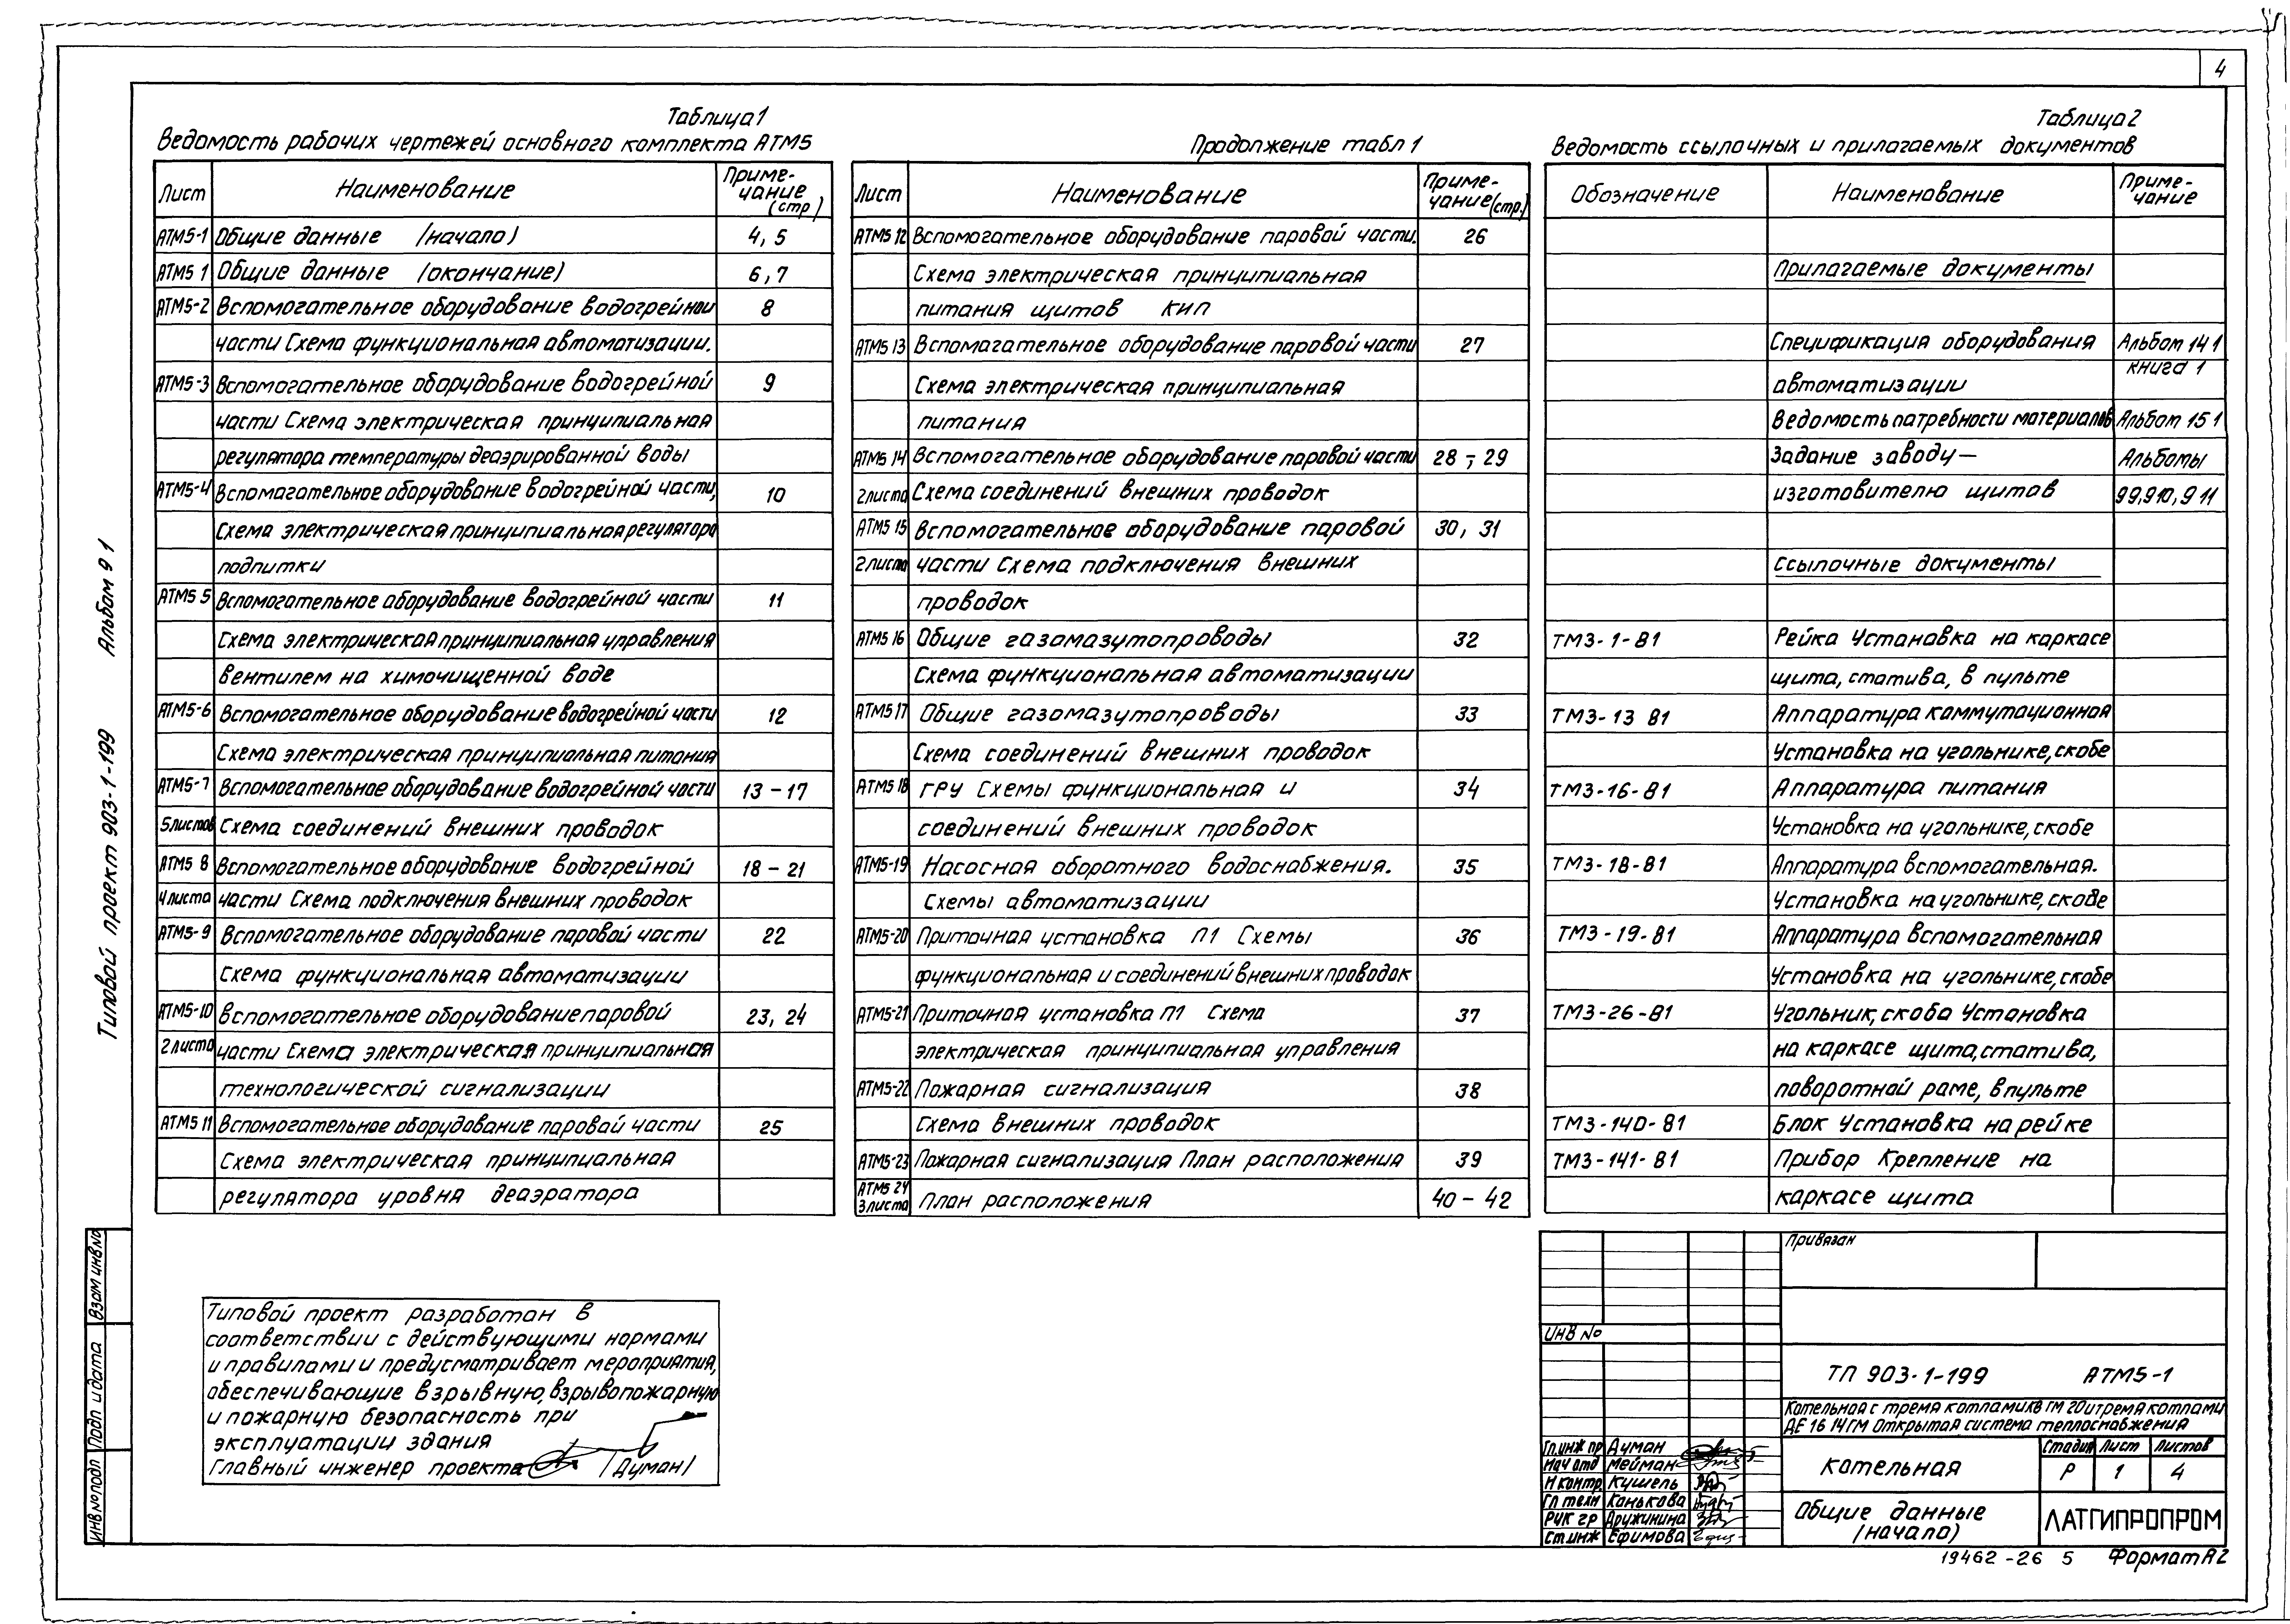 4
Таблица 1
Ведомость рабочих чертежей основного комплекта АТМ5
Лист Наименование Приме-
чание
(стр)
АТМ5-1 Общие данные (начало) 4, 5
АТМ5 1 Общие данные (окончание) 6, 7
АТМ5-2 Вспомогательное оборудование водогрейной 8
части Схема функциональная автоматизации.
АТМ5-3 Вспомогательное оборудование водогрейной 9
части Схема электрическая принципиальная
регулятора температуры деаэрированной воды
АТМ5-4 Вспомагательное оборудование водогрейной части, 10
Схема электрическая принципиальная регулятора
подпитки
АТМ5 5 Вспомогательное оборудование водогрейной части 11
Схема электрическая принципиальная управления
вентилем на химочищенной воде
АТМ5-6 Вспомогательное оборудование водогрейной части 12
Схема электрическая принципиальная питания
АТМ5-7 Вспомогательное оборудование водогрейной части 13 - 17
5 листов Схема соединений внешних проводок
АТМ5 8 Вспомогательное оборудование водогрейной 18 - 21
4 листа части Схема подключения внешних проводок
АТМ5-9 Вспомогательное оборудование паровой части 22
Схема функциональная автоматизации
АТМ5-10 Вспомогательное оборудование паровой 23, 24
2 листа части Схема электрическая принципиальная
технологической сигнализации
АТМ5 11 Вспомогательное оборудование паровой части 25
Схема электрическая принципиальная
регулятора уровня деаэратора
Продолжение табл 1
Лист Наименование Приме-
чание (стр.)
АТМ5 12 Вспомогательное оборудование паровой части. 26
Схема электрическая принципиальная
питания щитов КИП
АТМ5 13 Вспомагательное оборудование паровой части 27
Схема электрическая принципиальная
питания
АТМ5 14 Вспомогательное оборудование паровой части 28 - 29
2 листа Схема соединений внешних проводок
АТМ5 15 Вспомогательное оборудование паровой 30, 31
2 листа части Схема подключения внешних
проводок
АТМ5 16 Общие газомазутопроводы 32
Схема функциональная автоматизации
АТМ5 17 Общие газомазутопроводы 33
Схема соединений внешних проводок
АТМ5 18 ГРУ Схемы функциональная и 34
соединений внешних проводок
АТМ5-19 Насосная оборотного водоснабжения. 35
Схемы автоматизации
АТМ5-20 Приточная установка П1 Схемы 36
функциональная и соединений внешних проводок
АТМ5-21 Приточная установка П1 Схема 37
электрическая принципиальная управления
АТМ5-22 Пожарная сигнализация 38
Схема внешних проводок
АТМ5-23 Пожарная сигнализация План расположения 39
АТМ5 24
3 листа План расположения 40 - 42
Таблица 2
Ведомость ссылочных и прилагаемых документов
Обозначение Наименование Приме-
чание
Прилагаемые документы
Спецификация оборудования Альбом 14 1
книга 1
автоматизации
Ведомость потребности материалов Альбом 15 1
Задание заводу- Альбомы
изготовителю щитов 9 9, 9 10, 9 11
Ссылочные документы
ТМ3-1-81 Рейка Установка на каркасе
щита, статива, в пульте
ТМ3-13 81 Аппаратура коммутационная
Установка на угольнике, скобе
ТМ3-16-81 Аппаратура питания
Установка на угольнике, скобе
ТМ3-18-81 Аппаратура вспомогательная.
Установка на угольнике, скобе
ТМ3-19-81 Аппаратура вспомогательная
Установка на угольнике, скобе
ТМ3-26-81 Угольник, скоба Установка
на каркасе щита, статива,
поворотной раме, в пульте
ТМ3-140-81 Блок Установка на рейке
ТМ3-141-81 Прибор Крепление на
каркасе щита
Типовой проект 903-1-199 Альбом 9 1
Взам инв №
Подп и дата
Инв № подл
Типовой проект разработан в
соответствии с действующими нормами
и правилами и предусматривает мероприятия,
обеспечивающие взрывную, взрывопожарную
и пожарную безопасность при
эксплуатации здания
Главный инженер проекта (Думан)
Привязан
Инв №
ТП 903-1-199 АТМ5-1
Котельная с тремя котлами КВ ГМ 20 и тремя котлами
ДЕ 16 14 ГМ Открытая система теплоснабжения
Гл. инж пр Думан
Нач отд Мейман
Н контр. Кушель
Гл техн Канькова
Рук гр Дружинина
Ст. инж Ефимова
Котельная
Стадия Лист Листов
Р 1 4
Общие данные
(начало)
ЛАТГИПРОПРОМ
19462-26 5 Формат А2